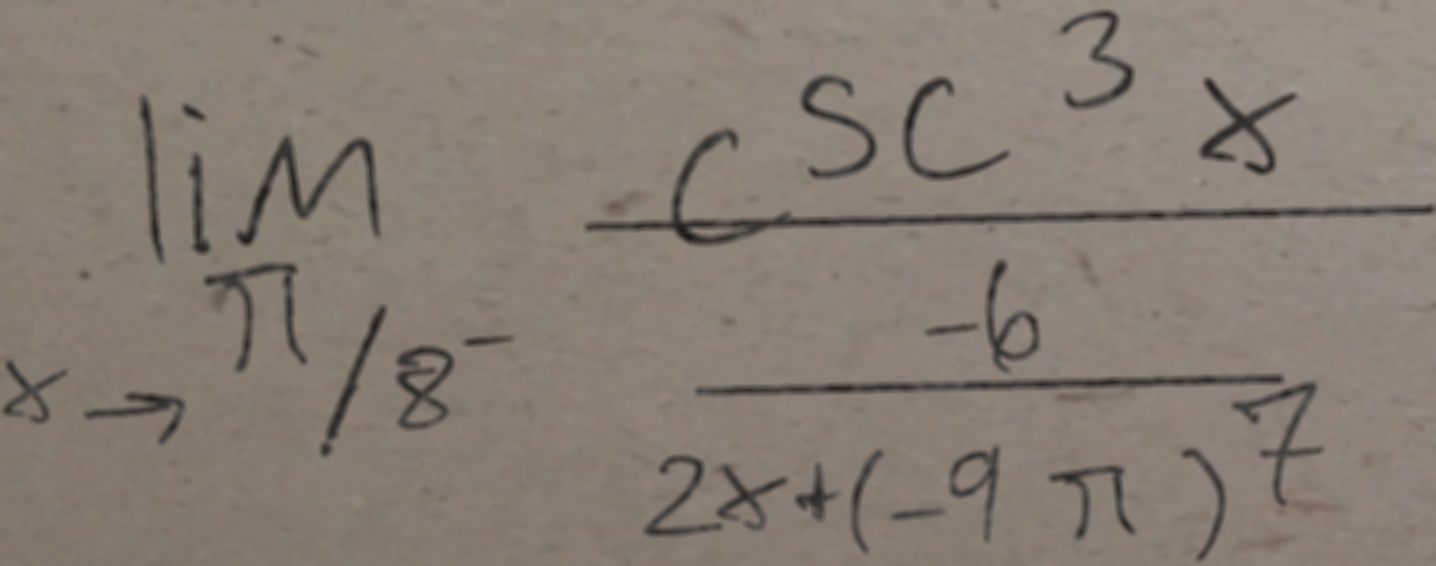 \lim_{x \to \pi/8^-} \frac{\csc^3 x}{\frac{-6}{2x+(-9\pi)^7}}